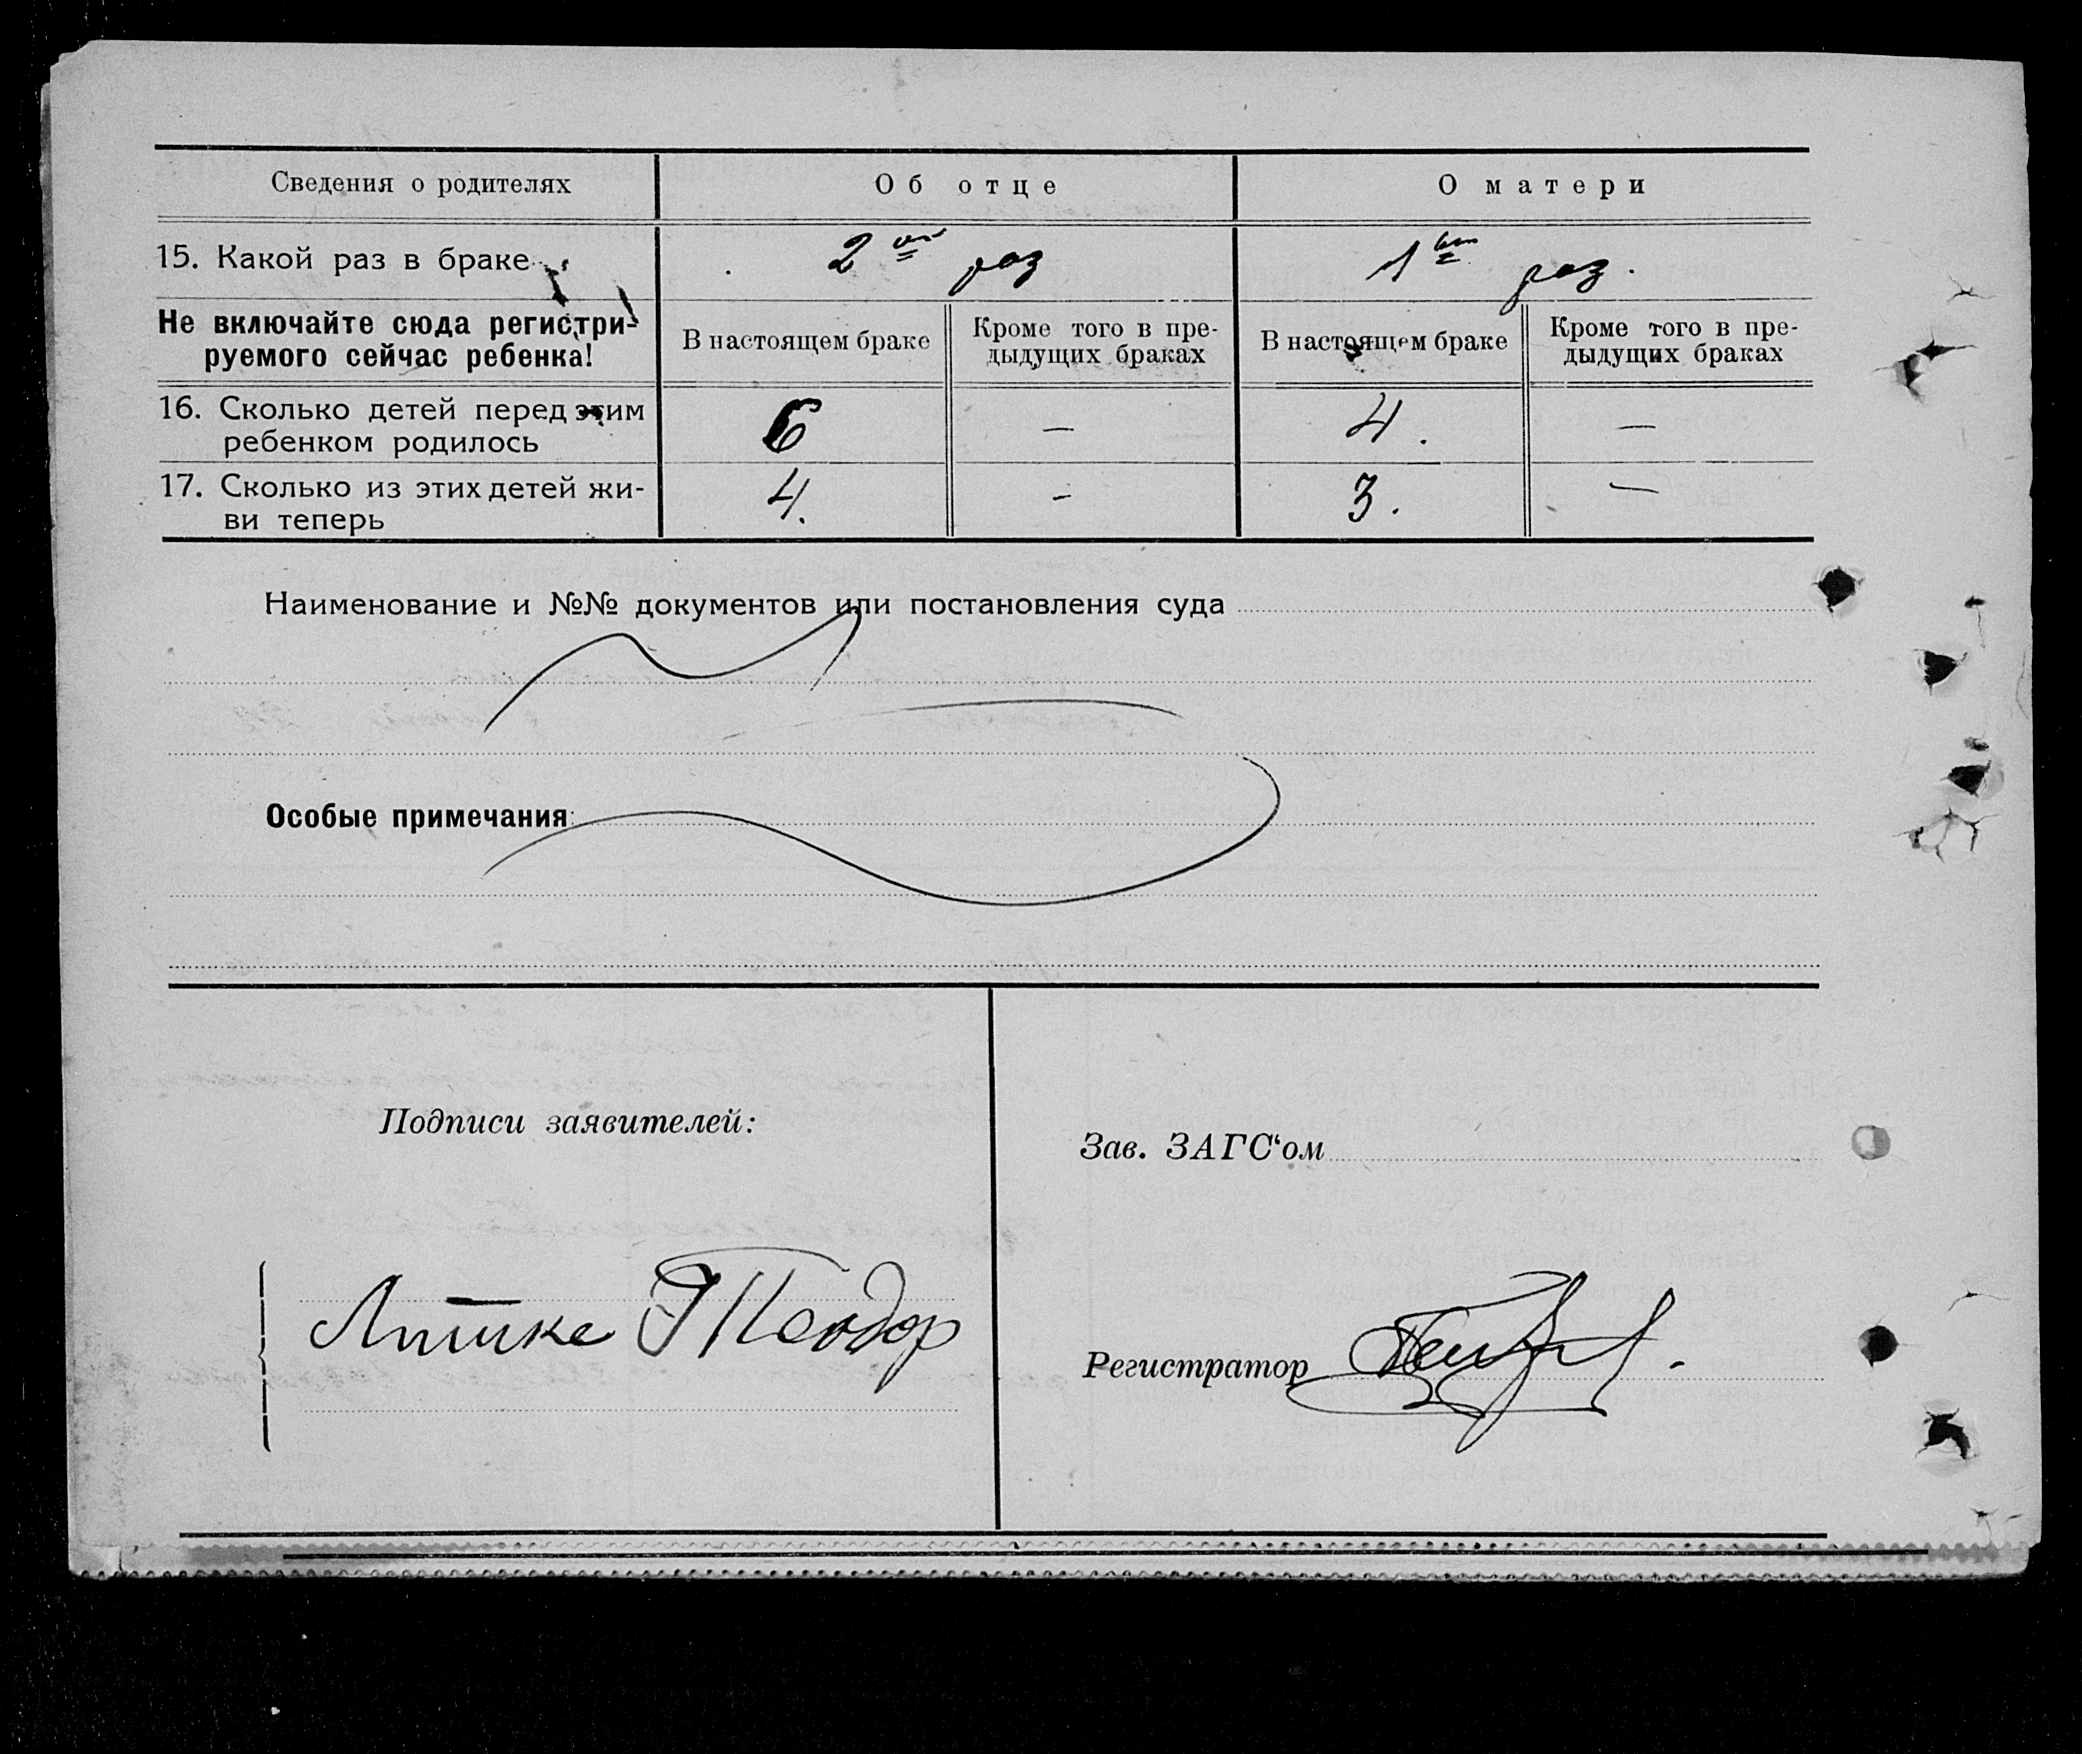 Сведения о родителях Об отце О матери
15. Какой раз в браке 2 ой раз 1 ый раз.
Не включайте сюда регистри-
руемого сейчас ребенка!
В настоящем браке
Кроме того в пре-
дыдущих браках
В настоящем браке
Кроме того в пре-
дыдущих браках
16. Сколько детей перед этим
ребенком родилось
6 — 4. —
17. Сколько из этих детей жи-
ви теперь
4. - 3. —
Наименование и №№ документов или постановления суда
Особые примечания:
Подписи заявителей:
Зав. ЗАГС‘ом
Теодор
Регистратор